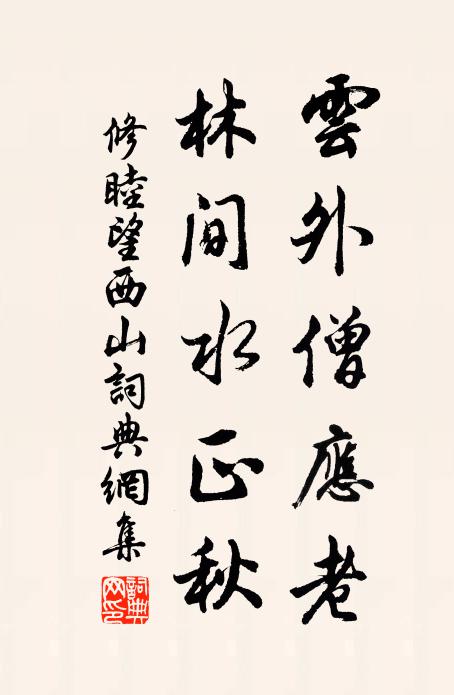 雲外僧應老
林間水正秋
修睦望西山詞典網集
詞典網印